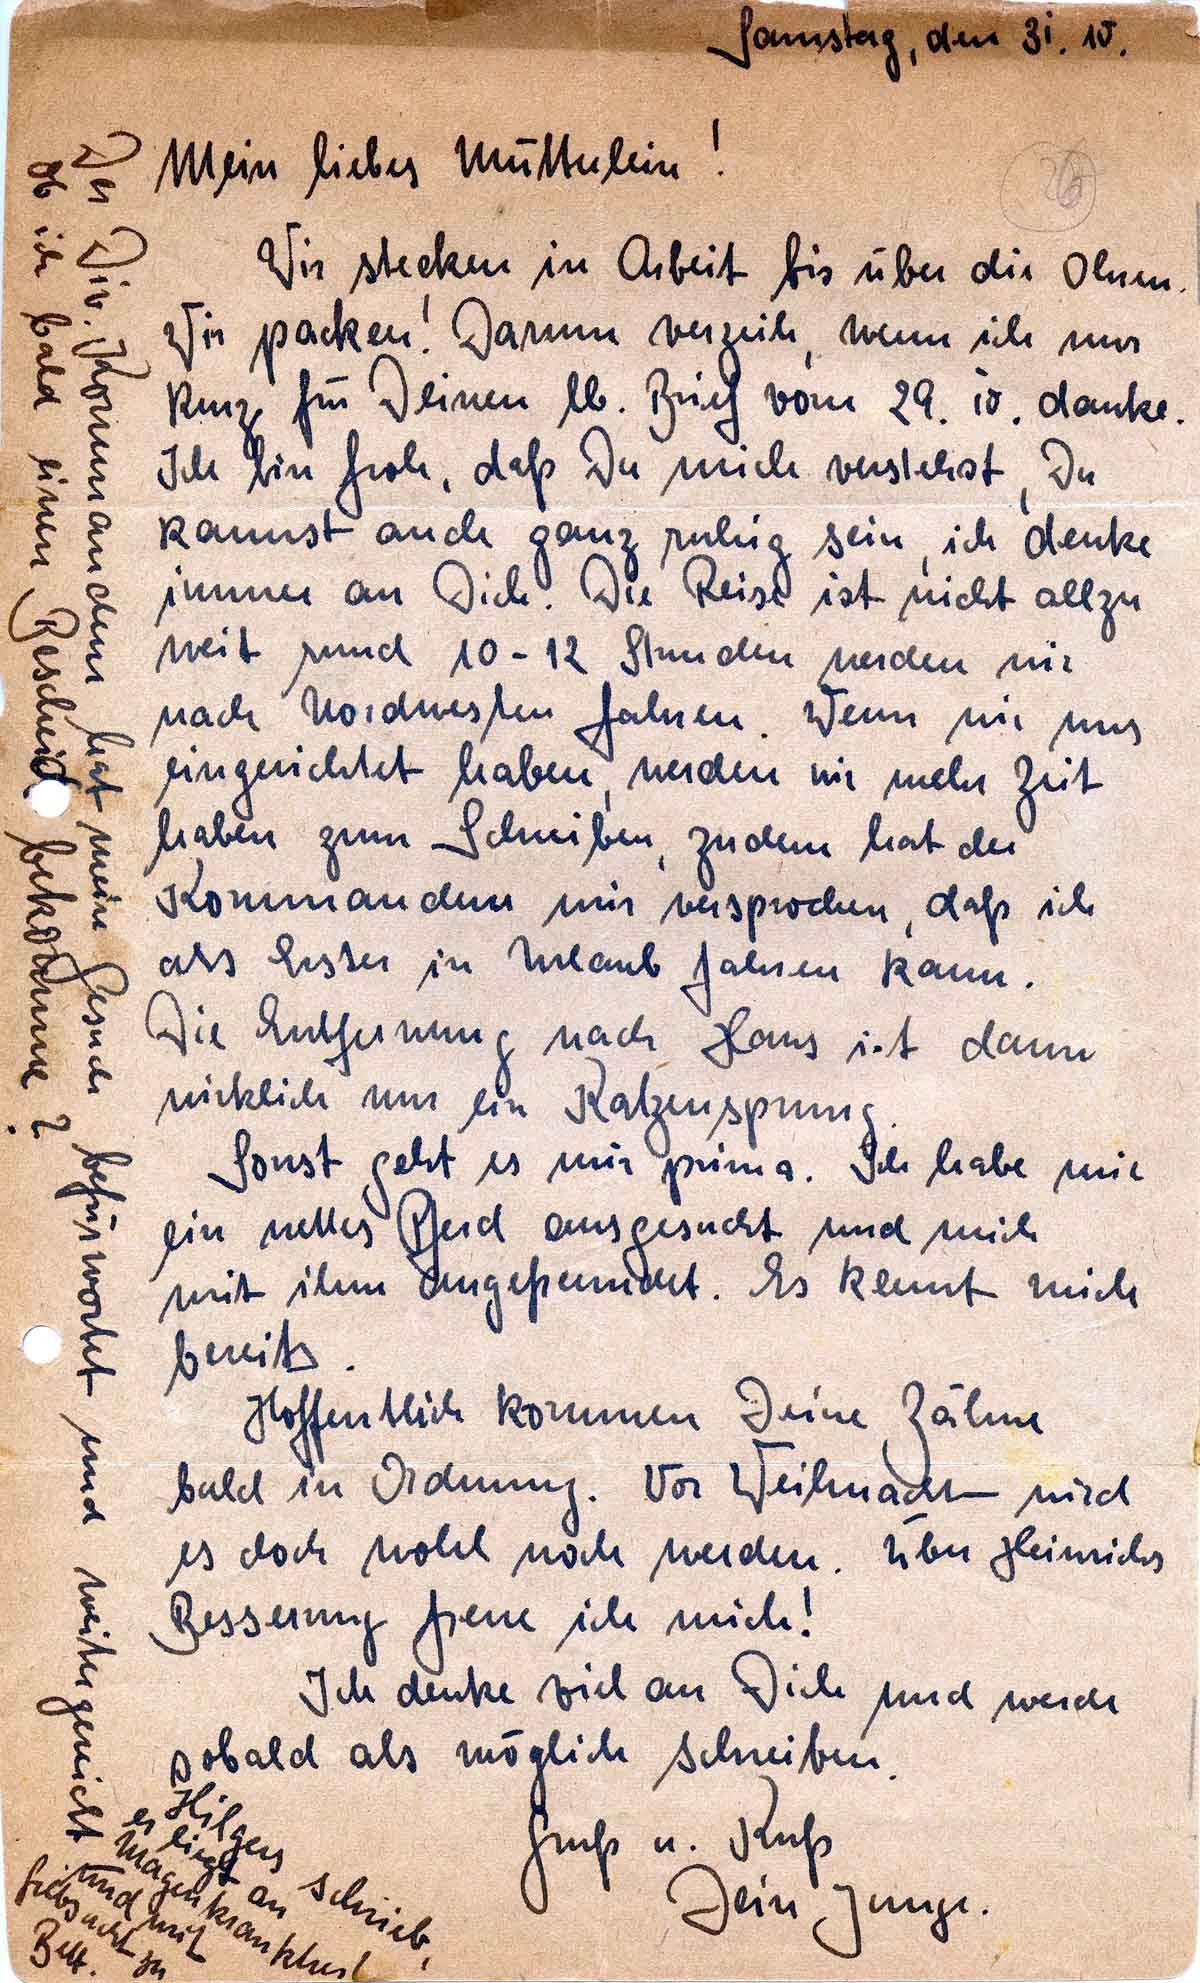 Samstag, den 31. 10.
Mein liebes Mütterlein!
Wir stecken in Arbeit bis über die Ohren.
Wir packen! Darum verzeih, wenn ich nur
kurz für Deinen lb. Brief vom 29. 10. danke.
Ich bin froh, daß Du mich verstehst, Du
kannst auch ganz ruhig sein, ich denke
immer an Dich. Die Reise ist nicht allzu
weit rund 10-12 Stunden werden wir
nach Nordwesten fahren. Wenn wir uns
eingerichtet haben, werden wir mehr Zeit
haben zum Schreiben, zudem hat der
Kommandeur mir versprochen, daß ich
als Erster in Urlaub fahren kann.
Die Entfernung nach Haus ist dann
wirklich nur ein Katzensprung.
Sonst geht es mir prima. Ich habe mir
ein nettes Pferd ausgesucht und mich
mit ihm angefreundet. Es kennt mich
bereits.
Hoffentlich kommen Deine Zähne
bald in Ordnung. Vor Weihnacht wird
es doch wohl noch werden. Über Heinrichs
Besserung freue ich mich!
Ich denke viel an Dich und werde
sobald als möglich schreiben.
Gruß u. Kuß
Dein Junge.
Der Div. Kommandeur hat mein Gesuch befürwortet und weitergereicht
Ob ich bald einen Bescheid bekomme?
Hilgers schrieb,
er liegt an
Magenkrankheit
und mit
Gelbsucht zu
Bett.